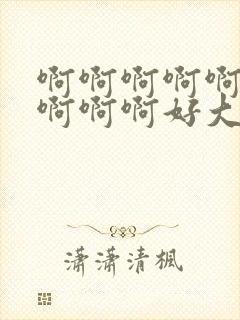 啊啊啊啊啊
啊啊啊好大
潇潇清楓